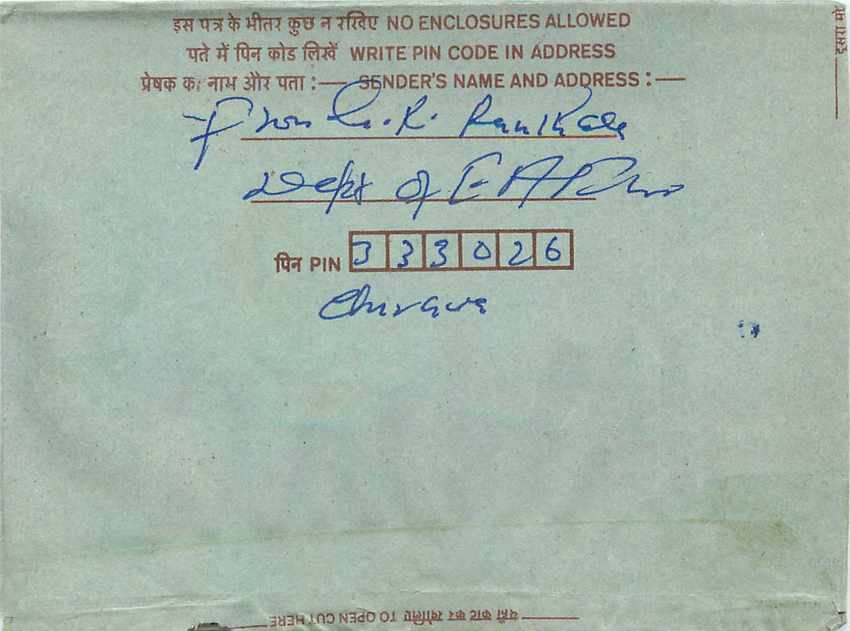 इस पत्र के भीतर कुछ न रखिए NO ENCLOSURES ALLOWED
पते में पिन कोड लिखें WRITE PIN CODE IN ADDRESS
प्रेषक का नाम और पता :— SENDER'S NAME AND ADDRESS :—
From
Dept of
पिन PIN 333026
Chirawa
यहाँ काट कर खोलिए TO OPEN CUT HERE